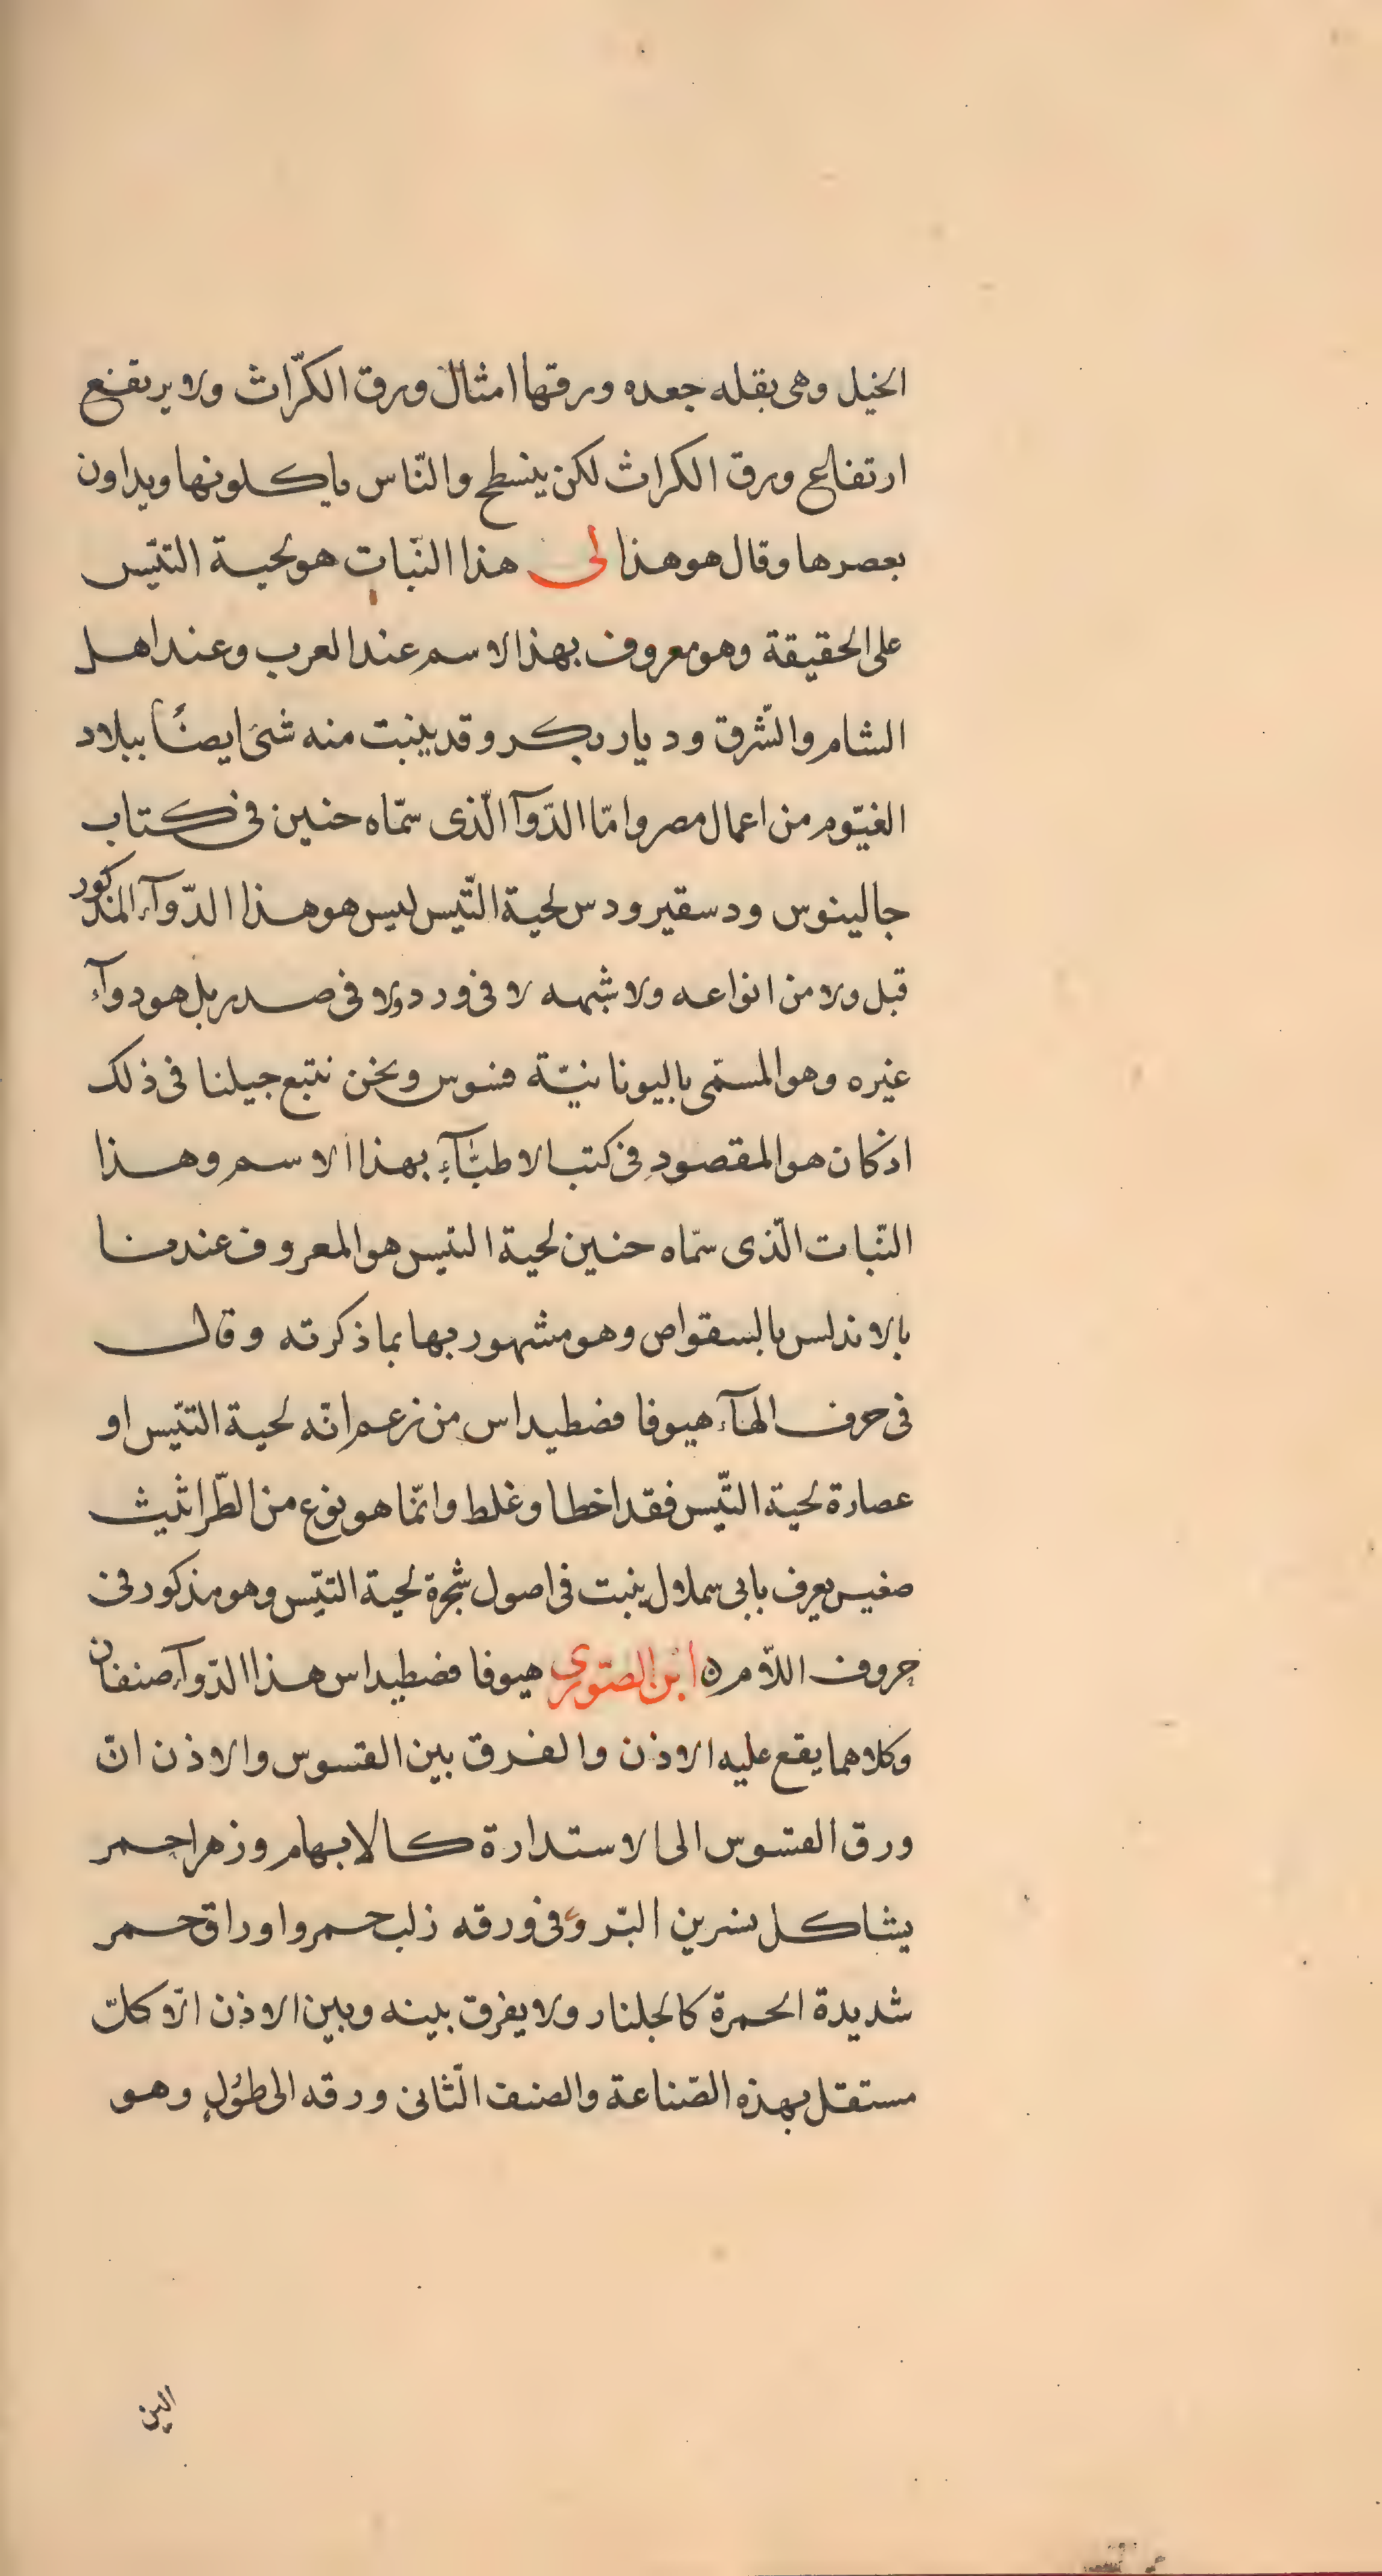 الخيل وهى بقله جعده ورقها امثال ورق الكرّاث ولا يرتفع
ارتفاع ورق الكراث لكن ينسطح والنّاس ياكلونها ويداون
بعصرها وقال هو هذا لى هذا النّبات هو لحية التيّس
على الحقيقة وهو معروف بهذا الاسم عند العرب وعند اهل
الشام والشّرق وديار بكر وقد ينبت منه شئ ايضًا ببلاد
الفيّوم من اعمال مصر وامّا الدّوآ الّذى سمّاه حنين فى كتاب
جالينوس ودسقيرودس لحية التّيس ليس هو هذا الدّوآء المذكور
قبل ولا من انواعه ولا شبهه لا فى ورد ولا فى صدر بل هو دوآء
غيره وهو المسمّى باليونانيّة قسوس ونحن نتبع جيلنا فى ذلك
اذ كان هو المقصود فى كتب الاطبّآء بهذا الاسم وهذا
النّبات الّذى سمّاه حنين لحية التيس هو المعروف عندنا
بالاندلس بالسقواص وهو مشهور بها بما ذكرته وقال
فى حرف الهآء هيوفا قضطيداس من زعم انّه لحية التيّس او
عصارة لحية التّيس فقد اخطا وغلط وانّما هو نوع من الطّراثيث
صغير يعرف بابى سملال ينبت فى اصول شجرة لحية التيّس وهو مذكور فى
حروف اللّام ه ابن الصّورى هيوفا قضطيداس هذا الدّوآء صنفان
وكلاهما يقع عليه الاذن والفرق بين القسوس والاذن انّ
ورق القسوس الى الاستدارة كالابهام وزهر احمر
يشاكل نسرين البّر وفى ورقه زلب حمر واوراق حمر
شديدة الحمرة كالجلنار ولا يفرق بينه وبين الاذن الّا كلّ
مستقل بهذه الصّناعة والصنف الثّانى ورقه الى طوُلٍ وهو